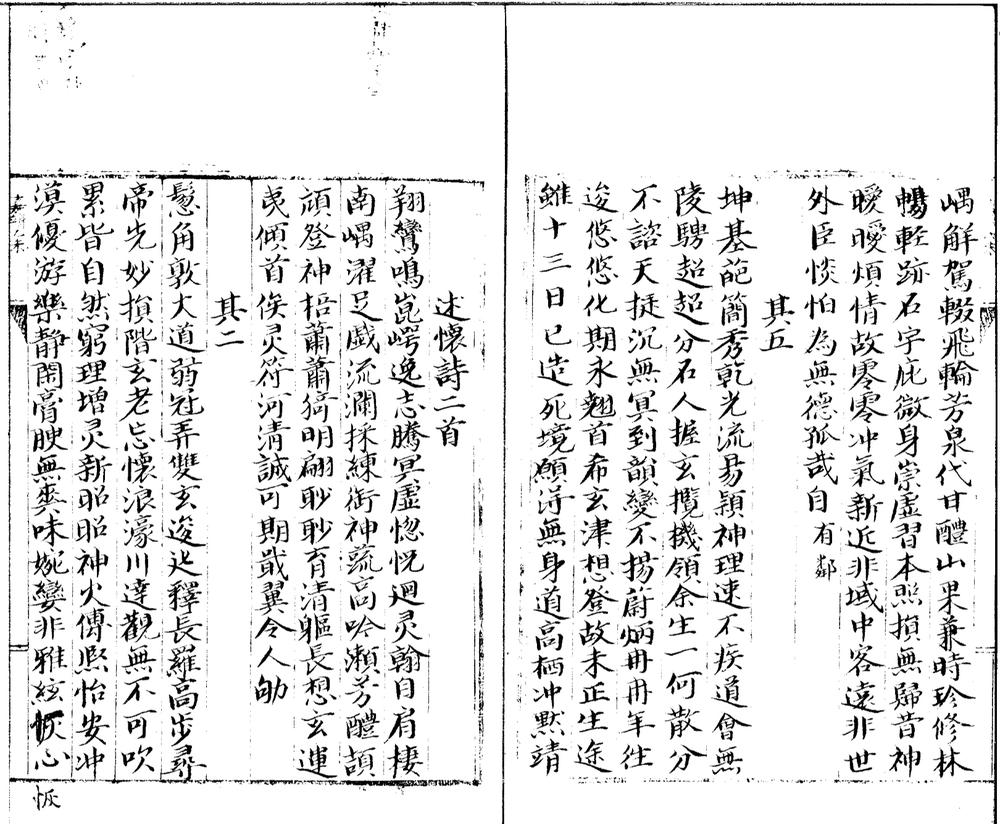 嵎解駕輟飛輪芳泉代甘醴山果兼時珍修林
暢輕跡石宇庇微身崇虛習本照損無歸昔神
曖曖煩情故零零冲氣新近非域中客遠非世
外臣惔怕為無德孤哉自有鄰
其五
坤基葩簡秀乾光流易頴神理速不疾道會無
陵騁超超分石人握玄攬機領余生一何散分
不諮天挺沉無冥到韻變不揚蔚炳冉冉年往
逡悠悠化期永翹首希玄津想登故未正生途
雖十三日已造死境願淂無身道高栖冲默靖
述懷詩二首
翔鸞鳴崑崿逸志騰冥虛惚怳迴灵翰自肩棲
南嵎濯足戯流瀾採練銜神蔬高吟潄芳醴頡
頏登神梧蕭蕭猗明翮眇眇育清軀長想玄運
夷傾首俟灵符河清誠可期戢翼令人劬
其二
髫角敦大道弱冠弄雙玄逡辵釋長羅高步尋
帝先妙損階玄老忘懷浪濠川達觀無不可吹
累皆自然窮理增灵新昭昭神火傳熙怡安冲
漠優游樂靜閑膏腴無爽味婉孌非雅絃恢心
恢